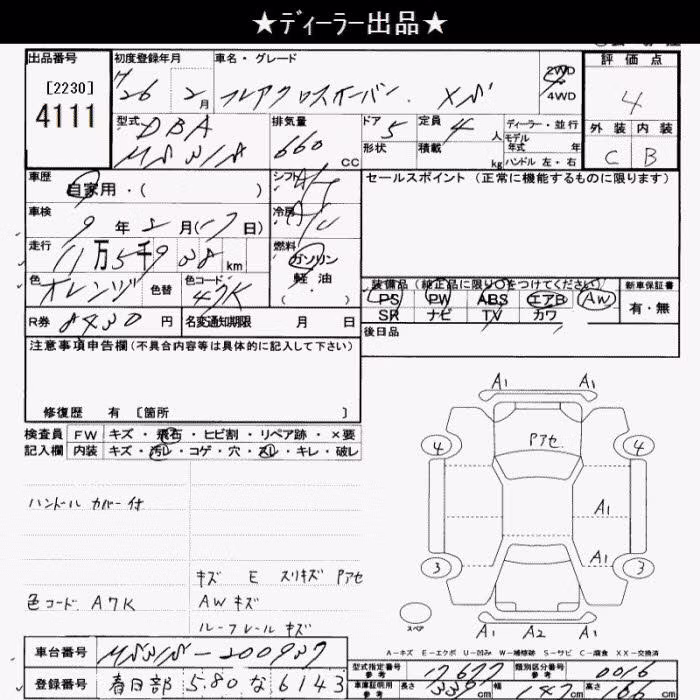 ★ディーラー出品★
出品番号 初度登録年月 車名・グレード 評価点
[2230] H 26 年 2 月 フレアクロスオーバー XS 2WD 4WD 4
4111 型式 DBA 排気量 660 CC ドア 5 定員 4 人 ディーラー・並行 外装 内装
MS31S 形状 積載 kg モデル年式 年 ハンドル 左・右 C B
車歴 自家用・( ) シフト セールスポイント (正常に機能するものに限ります)
車検 9 年 2 月 (17 日) 冷房
走行 11万5千938 km 燃料 ガソリン
色 オレンジ 色替 色コード A7K 軽油 ( )
装備品 (純正品に限り〇をつけてください) 新車保証書
PS PW ABS エアB AW 有・無
SR ナビ TV カワ
R券 8430 円 名変通知期限 月 日 後日品
注意事項申告欄 (不具合内容等は具体的に記入して下さい)
修復歴 有 〔箇所 〕
検査員 FW キズ・飛石・ヒビ割・リペア跡・×要
記入欄 内装 キズ・汚レ・コゲ・穴・スレ・キレ・破レ
A1 A1
4 Pアセ 4
A1
A1
3 3
スペア A1 A2 A1
ハンドル カバー付
キズ E スリキズ Pアセ
色コード A7K AWキズ
ルーフレールキズ
A－キズ E－エクボ U－凹み W－補修跡 S－サビ C－腐食 XX－交換済
車台番号 MS31S-200937 型式指定番号 参考 17677 類別区分番号 参考 0016
登録番号 春日部 580 な 6143 車庫証明用 参考 長さ 339 cm 幅 147 cm 高さ cm